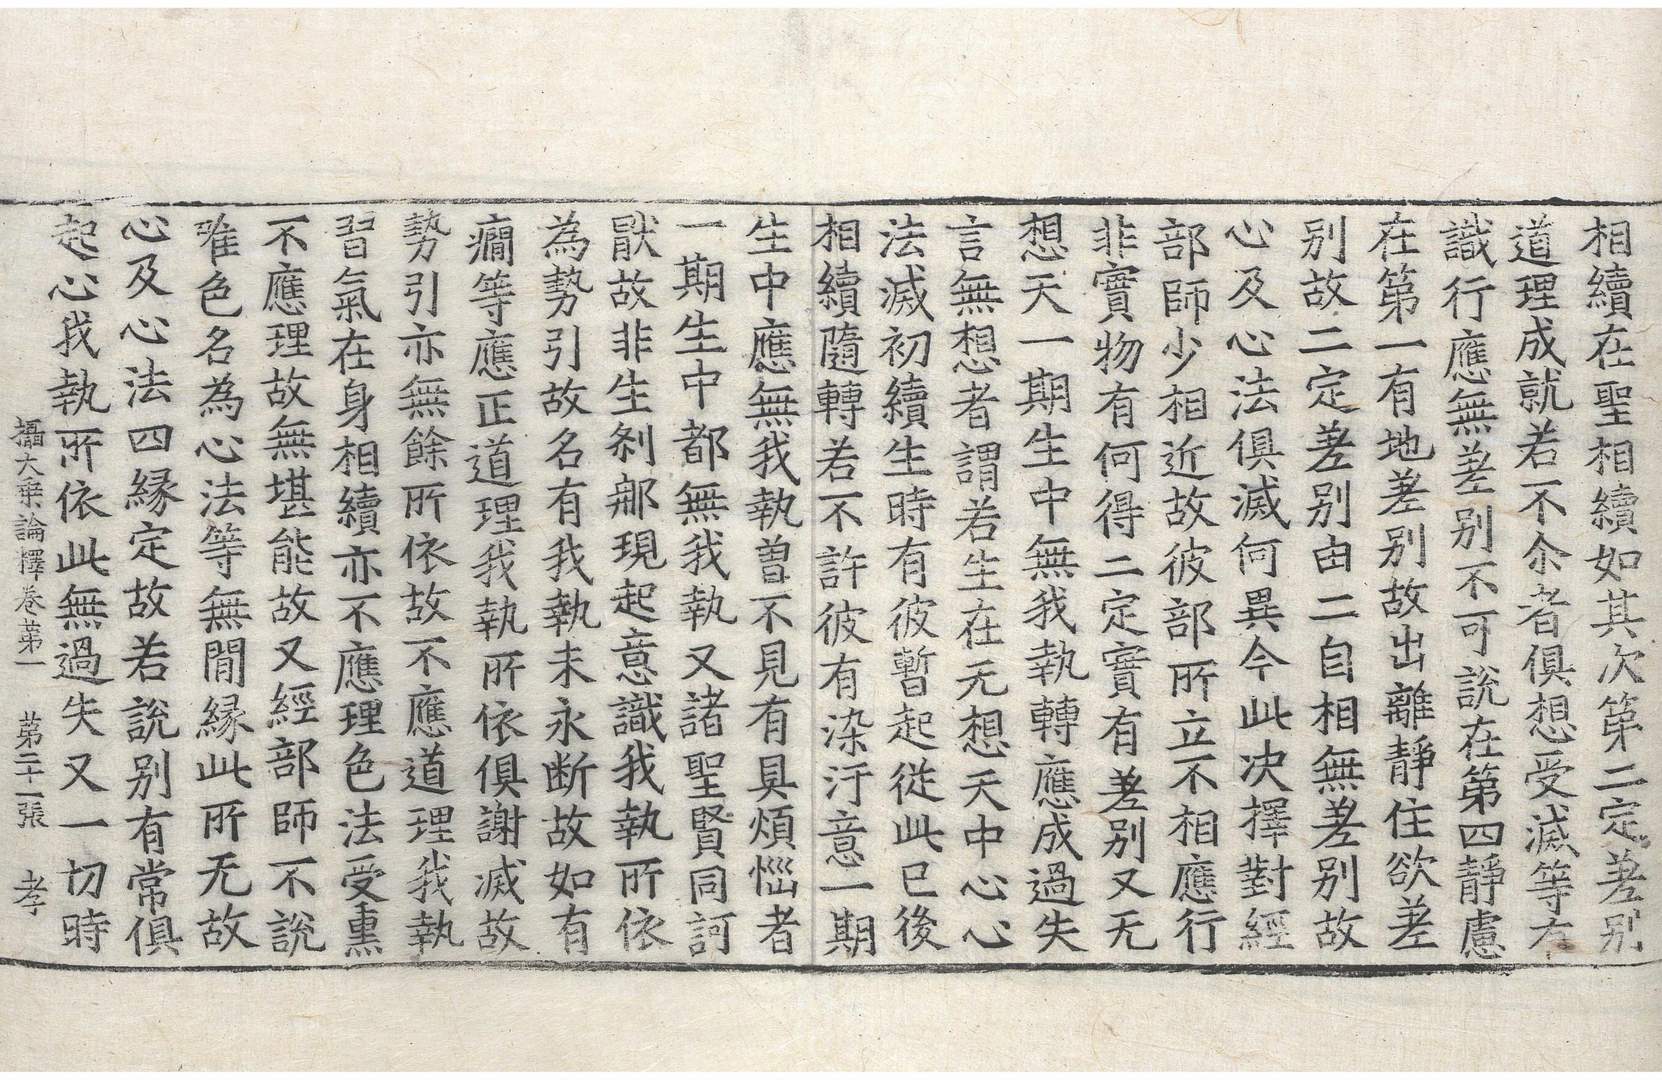 相續在聖相續如其次第二定差别
道理成就若不尒者俱想受滅等有
識行應無差别不可說在第四靜慮
在第一有地差别故出離靜住欲差
别故二定差别由二自相無差别故
心及心法俱滅何異今此决擇對經
部師少相近故彼部所立不相應行
非實物有何得二定實有差别又无
想天一期生中無我執轉應成過失
言無想者謂若生在无想天中心心
法滅初續生時有彼暫起從此已後
相續隨轉若不許彼有染汙意一期
生中應無我執曽不見有具煩惱者
一期生中都無我執又諸聖賢同訶
猒故非生剎那現起意識我執所依
為勢引故名有我執未永断故如有
癎等應正道理我執所依俱謝滅故
勢引亦無餘所依故不應道理我執
習氣在身相續亦不應理色法受熏
不應理故無堪能故又經部師不說
唯色名為心法等無間縁此所无故
心及心法四縁定故若說别有常俱
起心我執所依此無過失又一切時
攝大乗論釋卷第一　第二十一張　孝